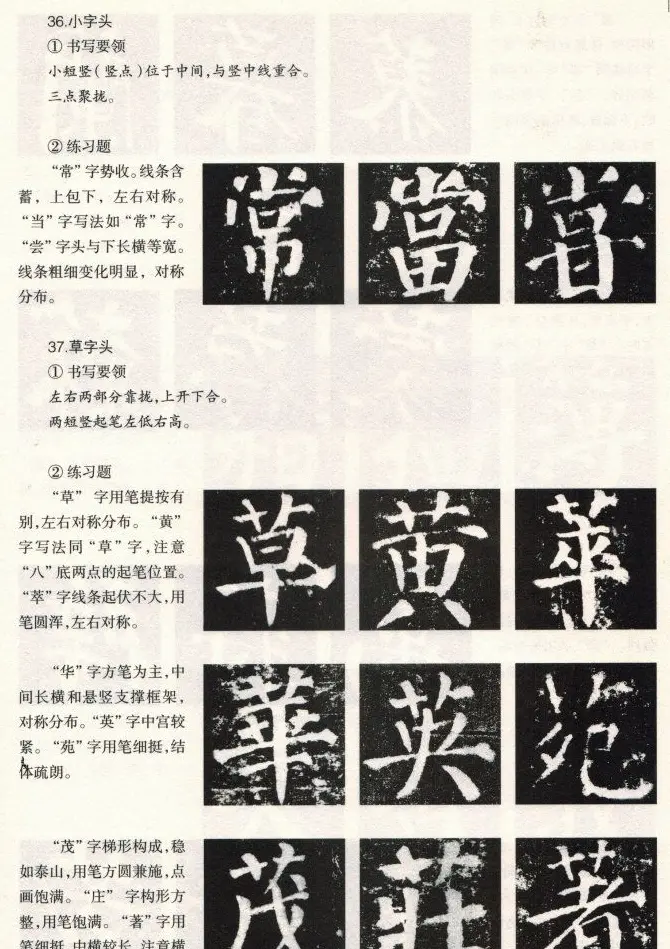 36.小字头
① 书写要领
小短竖(竖点)位于中间,与竖中线重合。
三点聚拢。
② 练习题
“常”字势收。线条含
蓄，上包下，左右对称。
“当”字写法如“常”字。
“尝”字头与下长横等宽。
线条粗细变化明显，对称
分布。
常 當 嘗
37.草字头
① 书写要领
左右两部分靠拢,上开下合。
两短竖起笔左低右高。
② 练习题
“草” 字用笔提按有
别,左右对称分布。“黄”
字写法同“草”字,注意
“八”底两点的起笔位置。
“萃”字线条起伏不大,用
笔圆浑,左右对称。
草 黄 萃
“华”字方笔为主,中
间长横和悬竖支撑框架,
对称分布。“英”字中宫较
紧。“苑”字用笔细挺,结
体疏朗。
華 英 苑
“茂”字梯形构成,稳
如泰山,用笔方圆兼施,点
画饱满。“庄” 字构形方
整,用笔饱满。“著”字用
笔细挺,中横较长,注意横
茂 莊 著